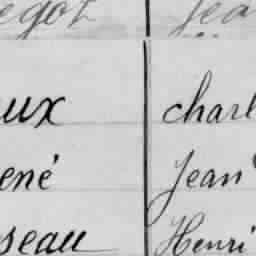 egot Jea
ux charl
ené Jean
seau Henri